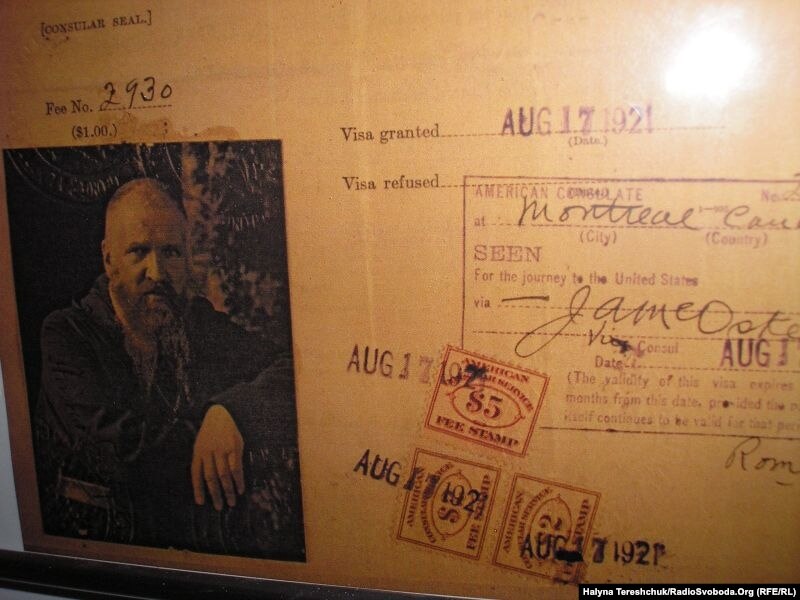 [CONSULAR SEAL.]
Fee No. 2930
($1.00.)
Visa granted AUG 17 1921
(Date.)
Visa refused
AMERICAN CONSULATE No.
at Montreal
(City) (Country)
SEEN
For the journey to the United States
via —
Vice Consul
Date
AUG 1
(The validity of this visa expires
months from this date, provided the
itself continues to be valid for that
AUG 17 192
AMERICAN
CONSULAR SERVICE
$5
FEE STAMP
Rom
AUG 17 192
AMERICAN
CONSULAR SERVICE
FEE STAMP
AMERICAN
CONSULAR SERVICE
2
FEE STAMP
AUG 17 1921
Halyna Tereshchuk/RadioSvoboda.Org (RFE/RL)